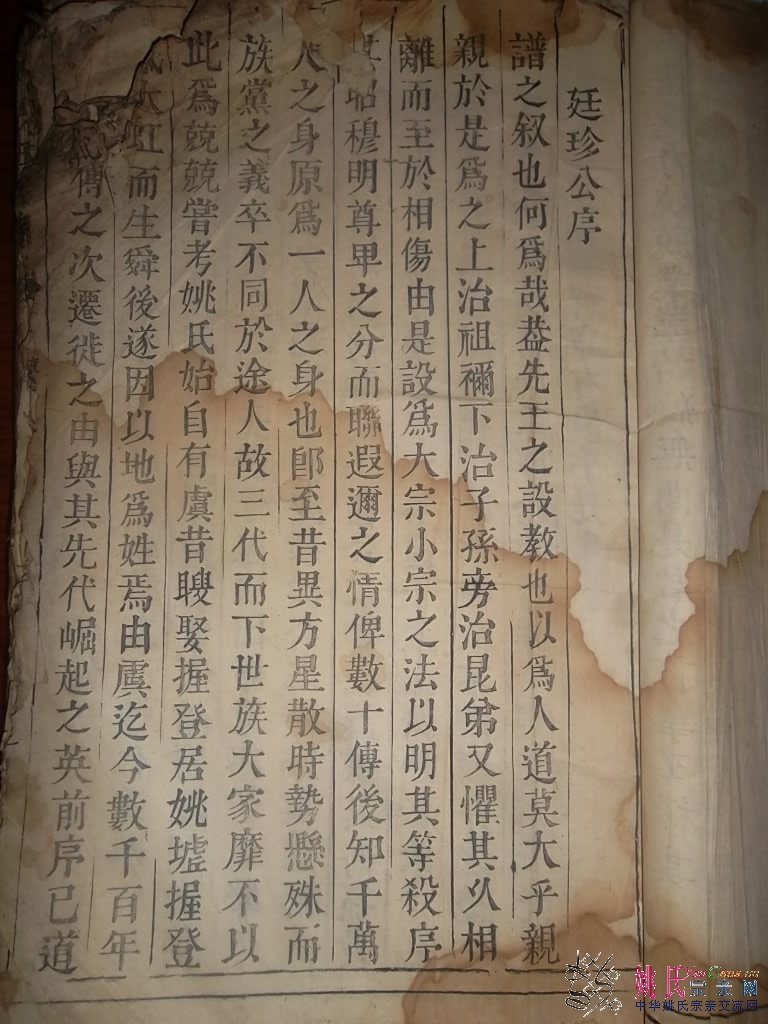 廷珍公序
譜之叙也何爲哉葢先王之設教也以爲人道莫大乎親
親於是爲之上治祖禰下治子孫旁治昆弟又懼其久相
離而至於相傷由是設爲大宗小宗之法以明其等殺序
其昭穆明尊卑之分而聯遐邇之情俾數十傳後知千萬
人之身原爲一人之身也卽至昔異方星散時勢懸殊而
族黨之義卒不同於途人故三代而下世族大家靡不以
此爲兢兢嘗考姚氏始自有虞昔瞍娶握登居姚墟握登
大虹而生舜後遂因以地爲姓焉由虞迄今數千百年
傳之次遷徙之由與其先代崛起之英前序已道
姚氏宗亲网
中华姚氏宗亲交流网